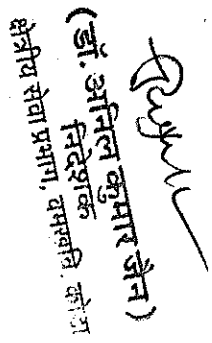 (डॉ. अनिल कुमार जैन)
निदेशक
क्षेत्रीय सेवा प्रभाग,